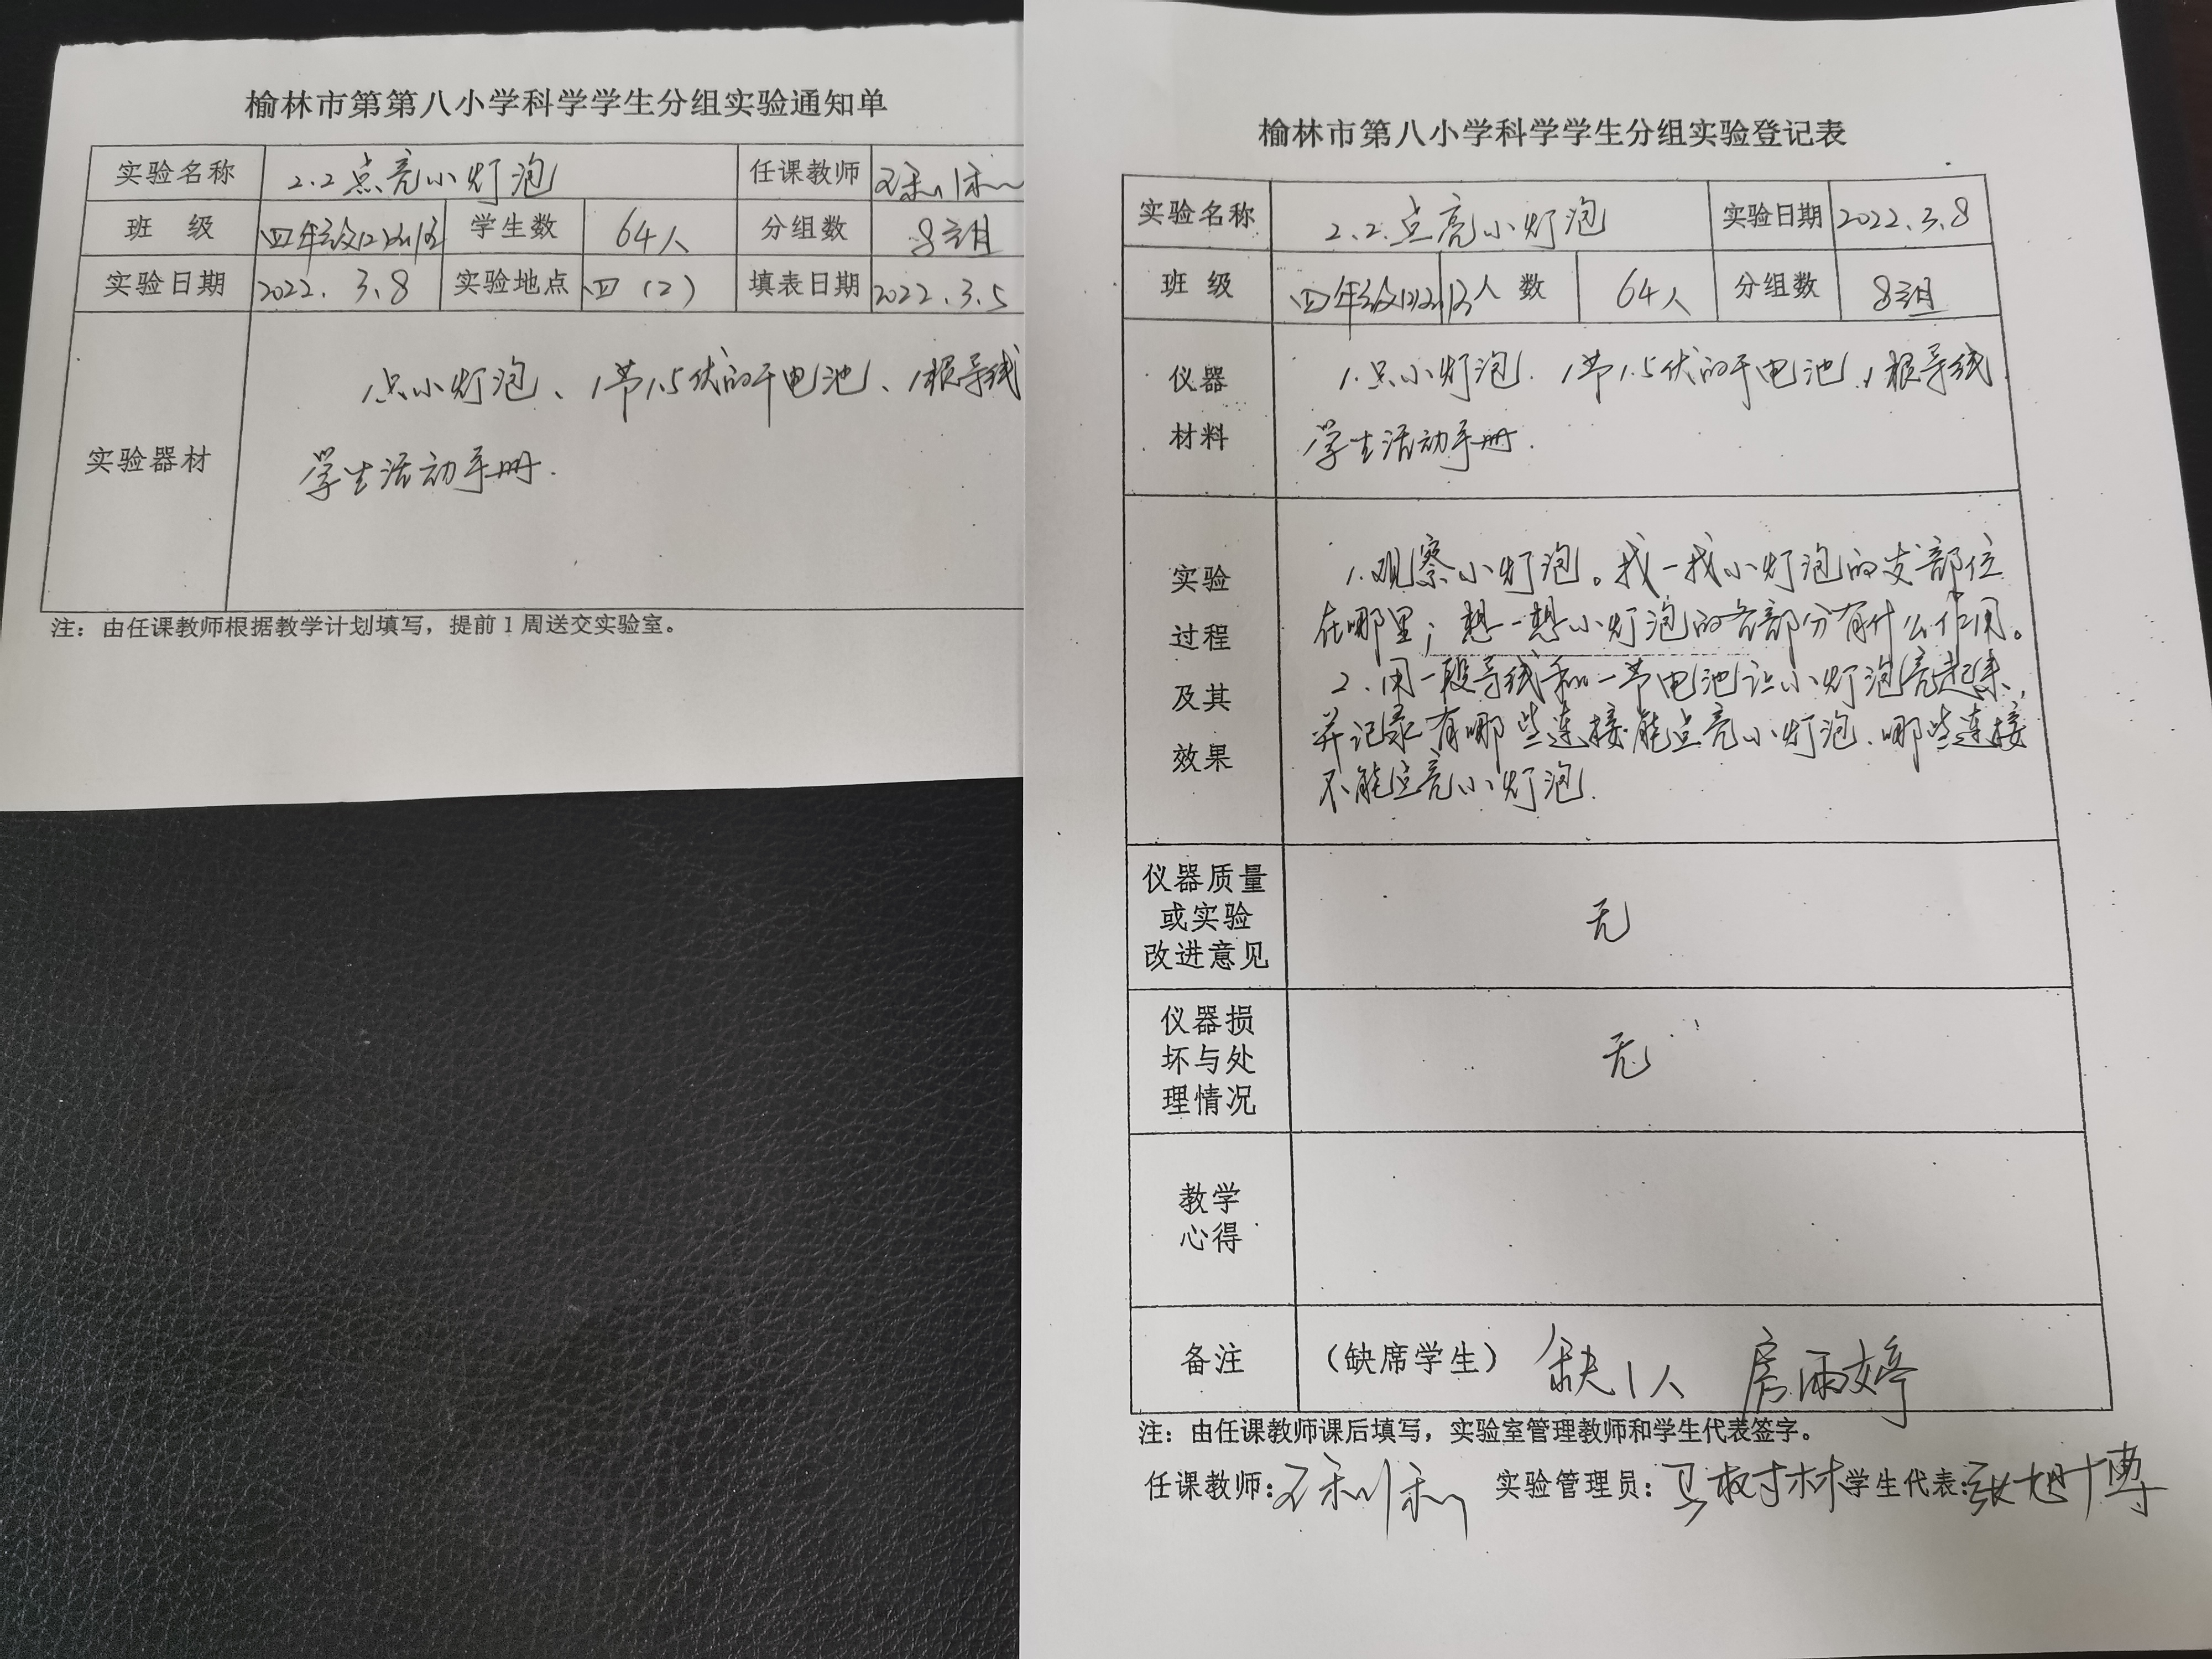 榆林市第第八小学科学学生分组实验通知单
实验名称 2.2点亮小灯泡 任课教师
班 级 四年级(2)班 学生数 64人 分组数 8组
实验日期 2022.3.8 实验地点 四(2) 填表日期 2022.3.5
实验器材
1只小灯泡、1节1.5伏的干电池、1根导线
学生活动手册.
注：由任课教师根据教学计划填写，提前1周送交实验室。
榆林市第八小学科学学生分组实验登记表
实验名称 2.2.点亮小灯泡 实验日期 2022.3.8
班 级 四年级(2)班 人 数 64人 分组数 8组
仪器
材料
1.只小灯泡.1节1.5伏的干电池.1根导线
学生活动手册.
实验
过程
及其
效果
1.观察小灯泡。找一找小灯泡的各部位
在哪里；想一想小灯泡的各部分有什么作用。
2.用一段导线和一节电池让小灯泡亮起来,
并记录有哪些连接能点亮小灯泡、哪些连接
不能点亮小灯泡.
仪器质量
或实验
改进意见
无
仪器损
坏与处
理情况
无
教学
心得
备注 （缺席学生） 缺1人 房雨婷
注：由任课教师课后填写，实验室管理教师和学生代表签字。
任课教师： 实验管理员：马树林 学生代表：张旭博